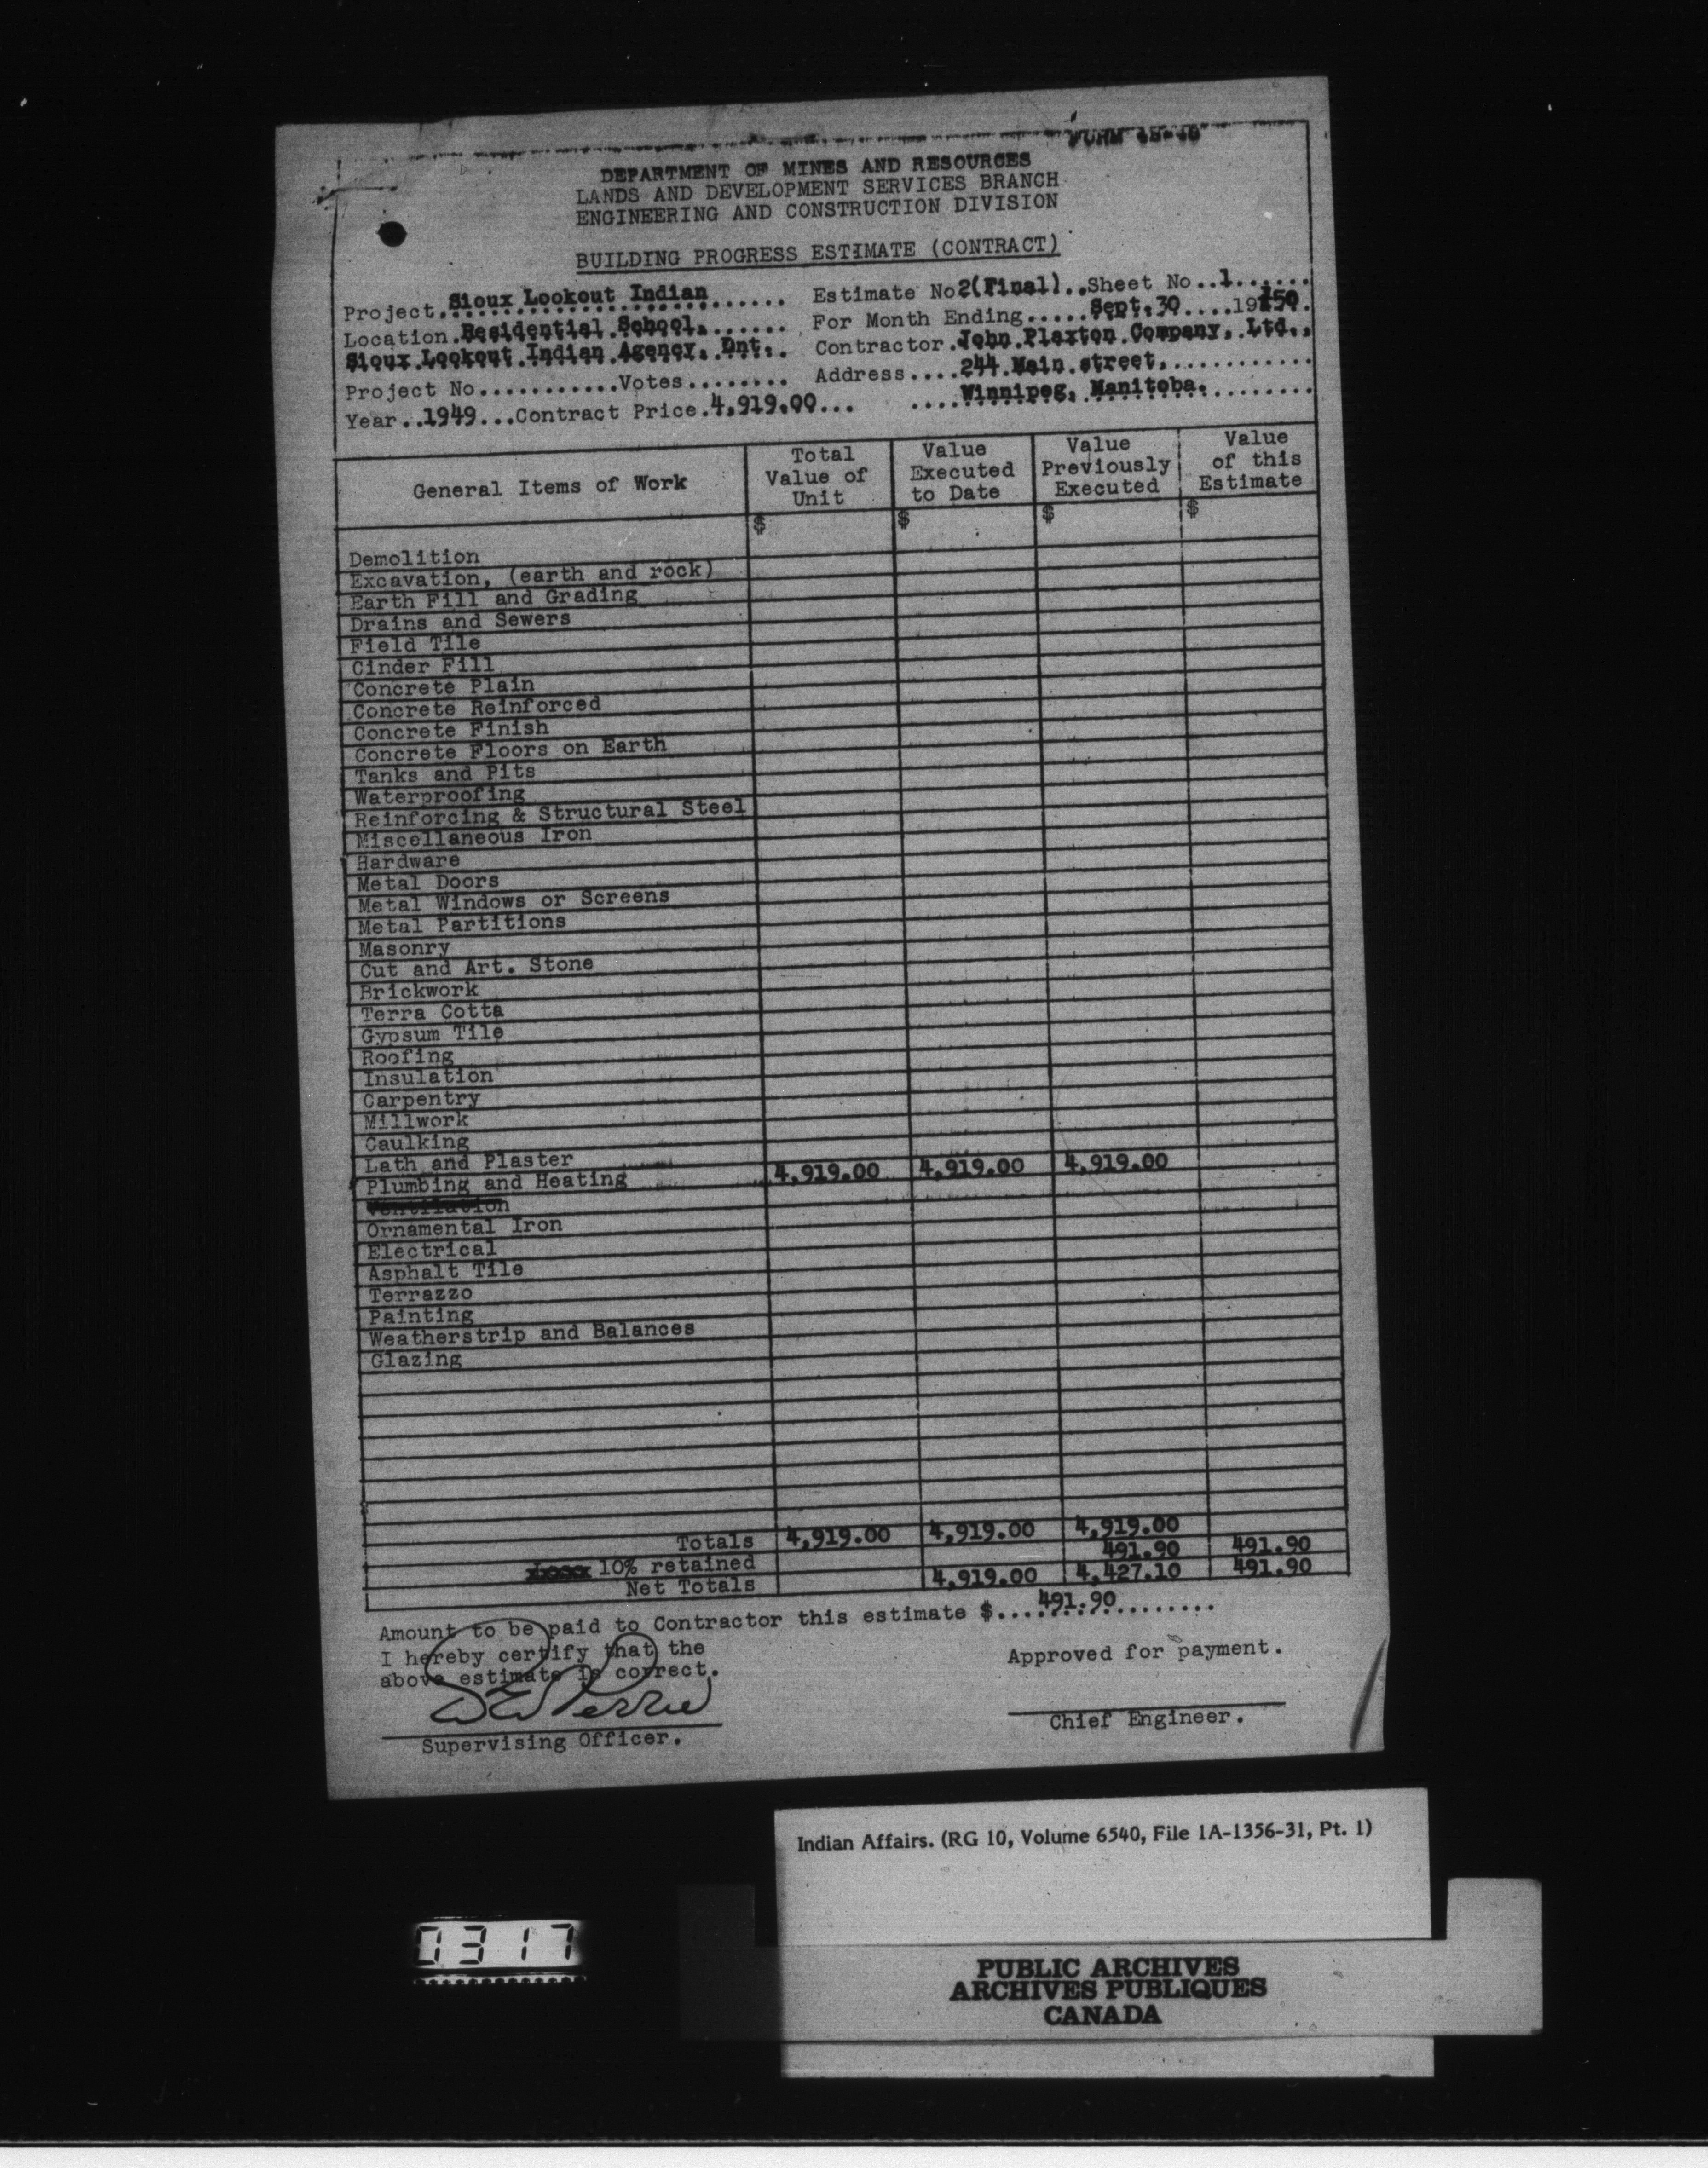 FORM
DEPARTMENT OF MINES AND RESOURCES
LANDS AND DEVELOPMENT SERVICES BRANCH
ENGINEERING AND CONSTRUCTION DIVISION
BUILDING PROGRESS ESTIMATE (CONTRACT)
Project. Sioux Lookout Indian ...... Estimate No 2(Final)..Sheet No..1......
Location. Residential School, ...... For Month Ending.....Sept.30....1950.
Sioux Lookout Indian Agency, Ont. Contractor. John Plaxton Company, Ltd.,
Project No...........Votes........ Address....244 Main street,...........
Year..1949...Contract Price.4,919.00... ....Winnipeg, Manitoba.........
General Items of Work Total Value of Unit Value Executed to Date Value Previously Executed Value of this Estimate
$ $ $ $
Demolition
Excavation, (earth and rock)
Earth Fill and Grading
Drains and Sewers
Field Tile
Cinder Fill
Concrete Plain
Concrete Reinforced
Concrete Finish
Concrete Floors on Earth
Tanks and Pits
Waterproofing
Reinforcing & Structural Steel
Miscellaneous Iron
Hardware
Metal Doors
Metal Windows or Screens
Metal Partitions
Masonry
Cut and Art. Stone
Brickwork
Terra Cotta
Gypsum Tile
Roofing
Insulation
Carpentry
Millwork
Caulking
Lath and Plaster
Plumbing and Heating 4,919.00 4,919.00 4,919.00
Ventilation
Ornamental Iron
Electrical
Asphalt Tile
Terrazzo
Painting
Weatherstrip and Balances
Glazing
Totals 4,919.00 4,919.00 4,919.00
10% retained 491.90 491.90
Net Totals 4,919.00 4,427.10 491.90
Amount to be paid to Contractor this estimate $....491.90..............
I hereby certify that the
above estimate is correct.
Approved for payment.
Supervising Officer.
Chief Engineer.
Indian Affairs. (RG 10, Volume 6540, File 1A-1356-31, Pt. 1)
0317
PUBLIC ARCHIVES
ARCHIVES PUBLIQUES
CANADA